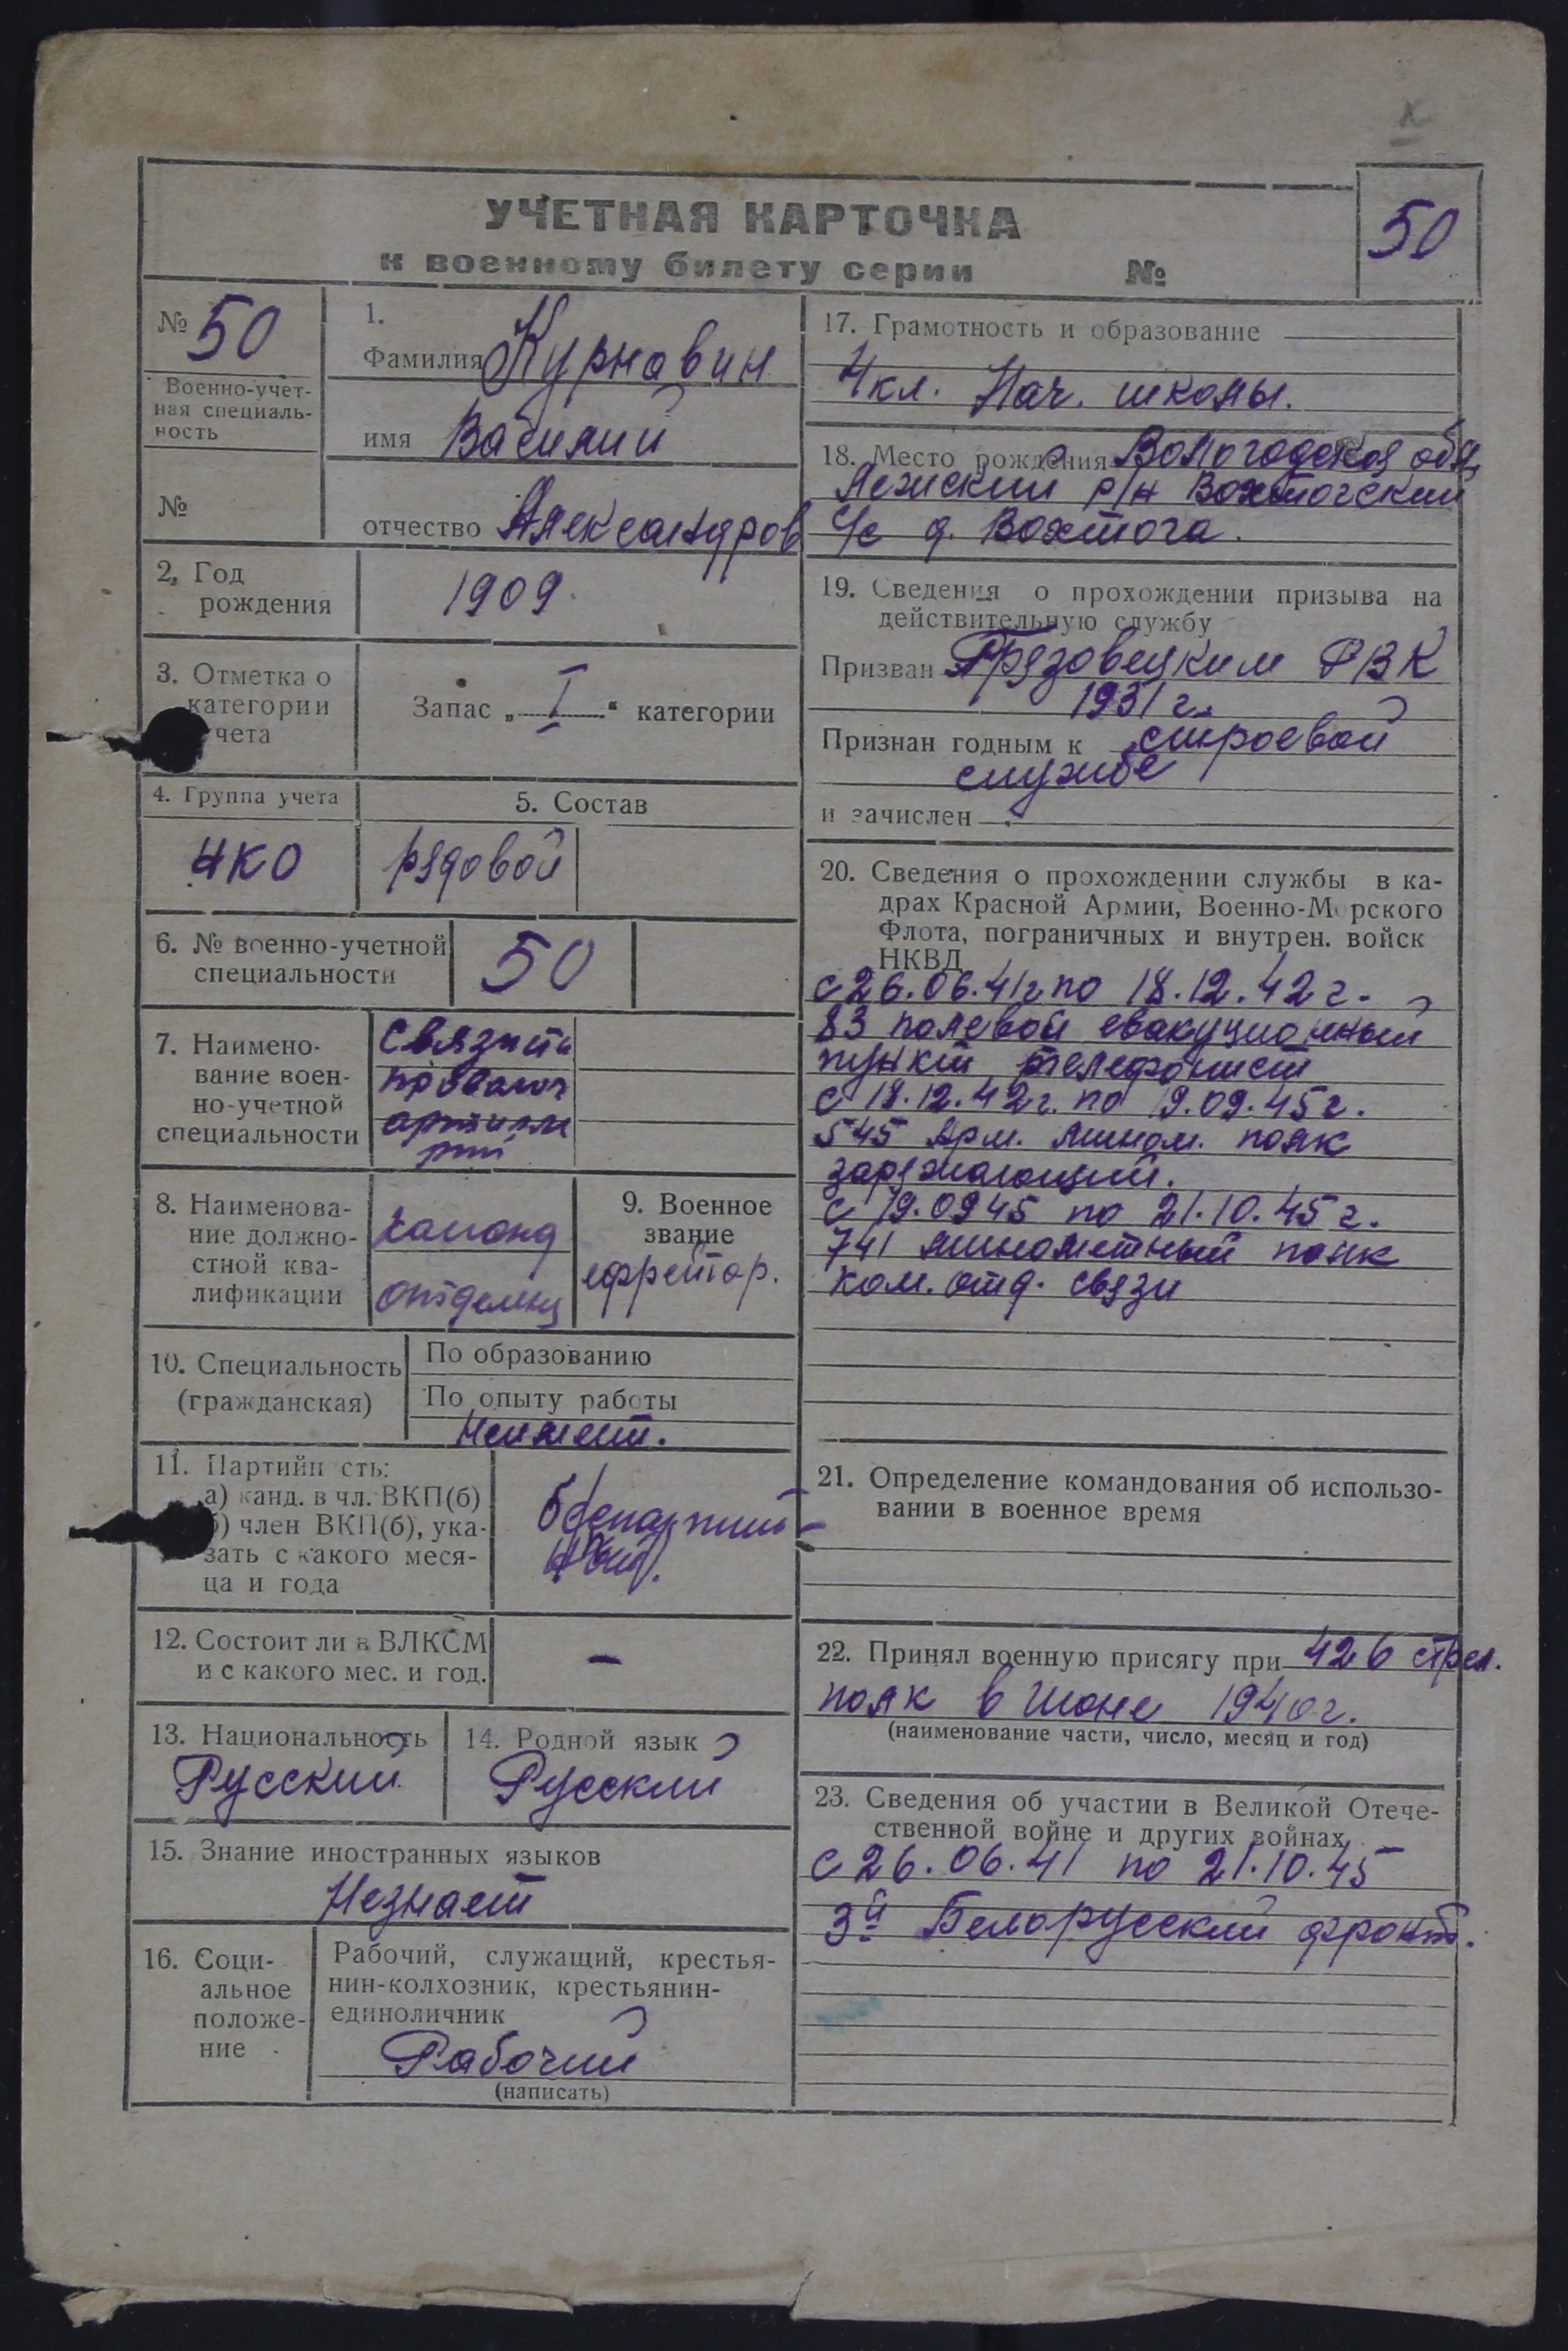 УЧЕТНАЯ КАРТОЧКА
к военному билету серии №
50
№ 50
Военно-учет-
ная специаль-
ность
№
1.
Фамилия Курнавин
имя Василий
отчество Александров
2. Год
рождения
1909
3. Отметка о
категории
чета
Запас „ I “ категории
4. Группа учета
НКО
5. Состав
рядовой
6. № военно-учетной
специальности
50
7. Наимено-
вание воен-
но-учетной
специальности
Связисты
проволоч
артилле
рии
8. Наименова-
ние должно-
стной ква-
лификации
команд
отделен
9. Военное
звание
ефрейтор.
10. Специальность
(гражданская)
По образованию
По опыту работы
Неимеет.
11. Партийн сть:
а) канд. в чл. ВКП(б)
б) член ВКП(б), ука-
зать с какого меся-
ца и года
12. Состоит ли в ВЛКСМ
и с какого мес. и год.
—
13. Национальность
Русский
14. Родной язык
Русский
15. Знание иностранных языков
Незнает
16. Соци-
альное
положе-
ние
Рабочий, служащий, крестья-
нин-колхозник, крестьянин-
единоличник
Рабочий
(написать)
17. Грамотность и образование
4 кл. Нач. школы.
18. Место рождения Вологодская обл,
Лежский р/н Вохтогский
с/с д. Вохтога.
19. Сведения о прохождении призыва на
действительную службу
Призван Грязовецким РВК
1931 г.
Признан годным к строевой
службе
и зачислен
20. Сведения о прохождении службы в ка-
драх Красной Армии, Военно-Морского
Флота, пограничных и внутрен. войск
НКВД
с 26.06.41г по 18.12.42 г.
83 полевой евакуционный
пункт телефонист
с 18.12.42 г. по 19.09.45 г.
545 Арм. Мином. полк
заряжающий.
с 19.0945 по 21.10.45 г.
741 минометный полк
ком. отд. связи
21. Определение командования об использо-
вании в военное время
22. Принял военную присягу при 426 стрел.
полк в июне 1940 г.
(наименование части, число, месяц и год)
23. Сведения об участии в Великой Отече-
ственной войне и других войнах
с 26.06.41 по 21.10.45
3й Белорусский фронт.